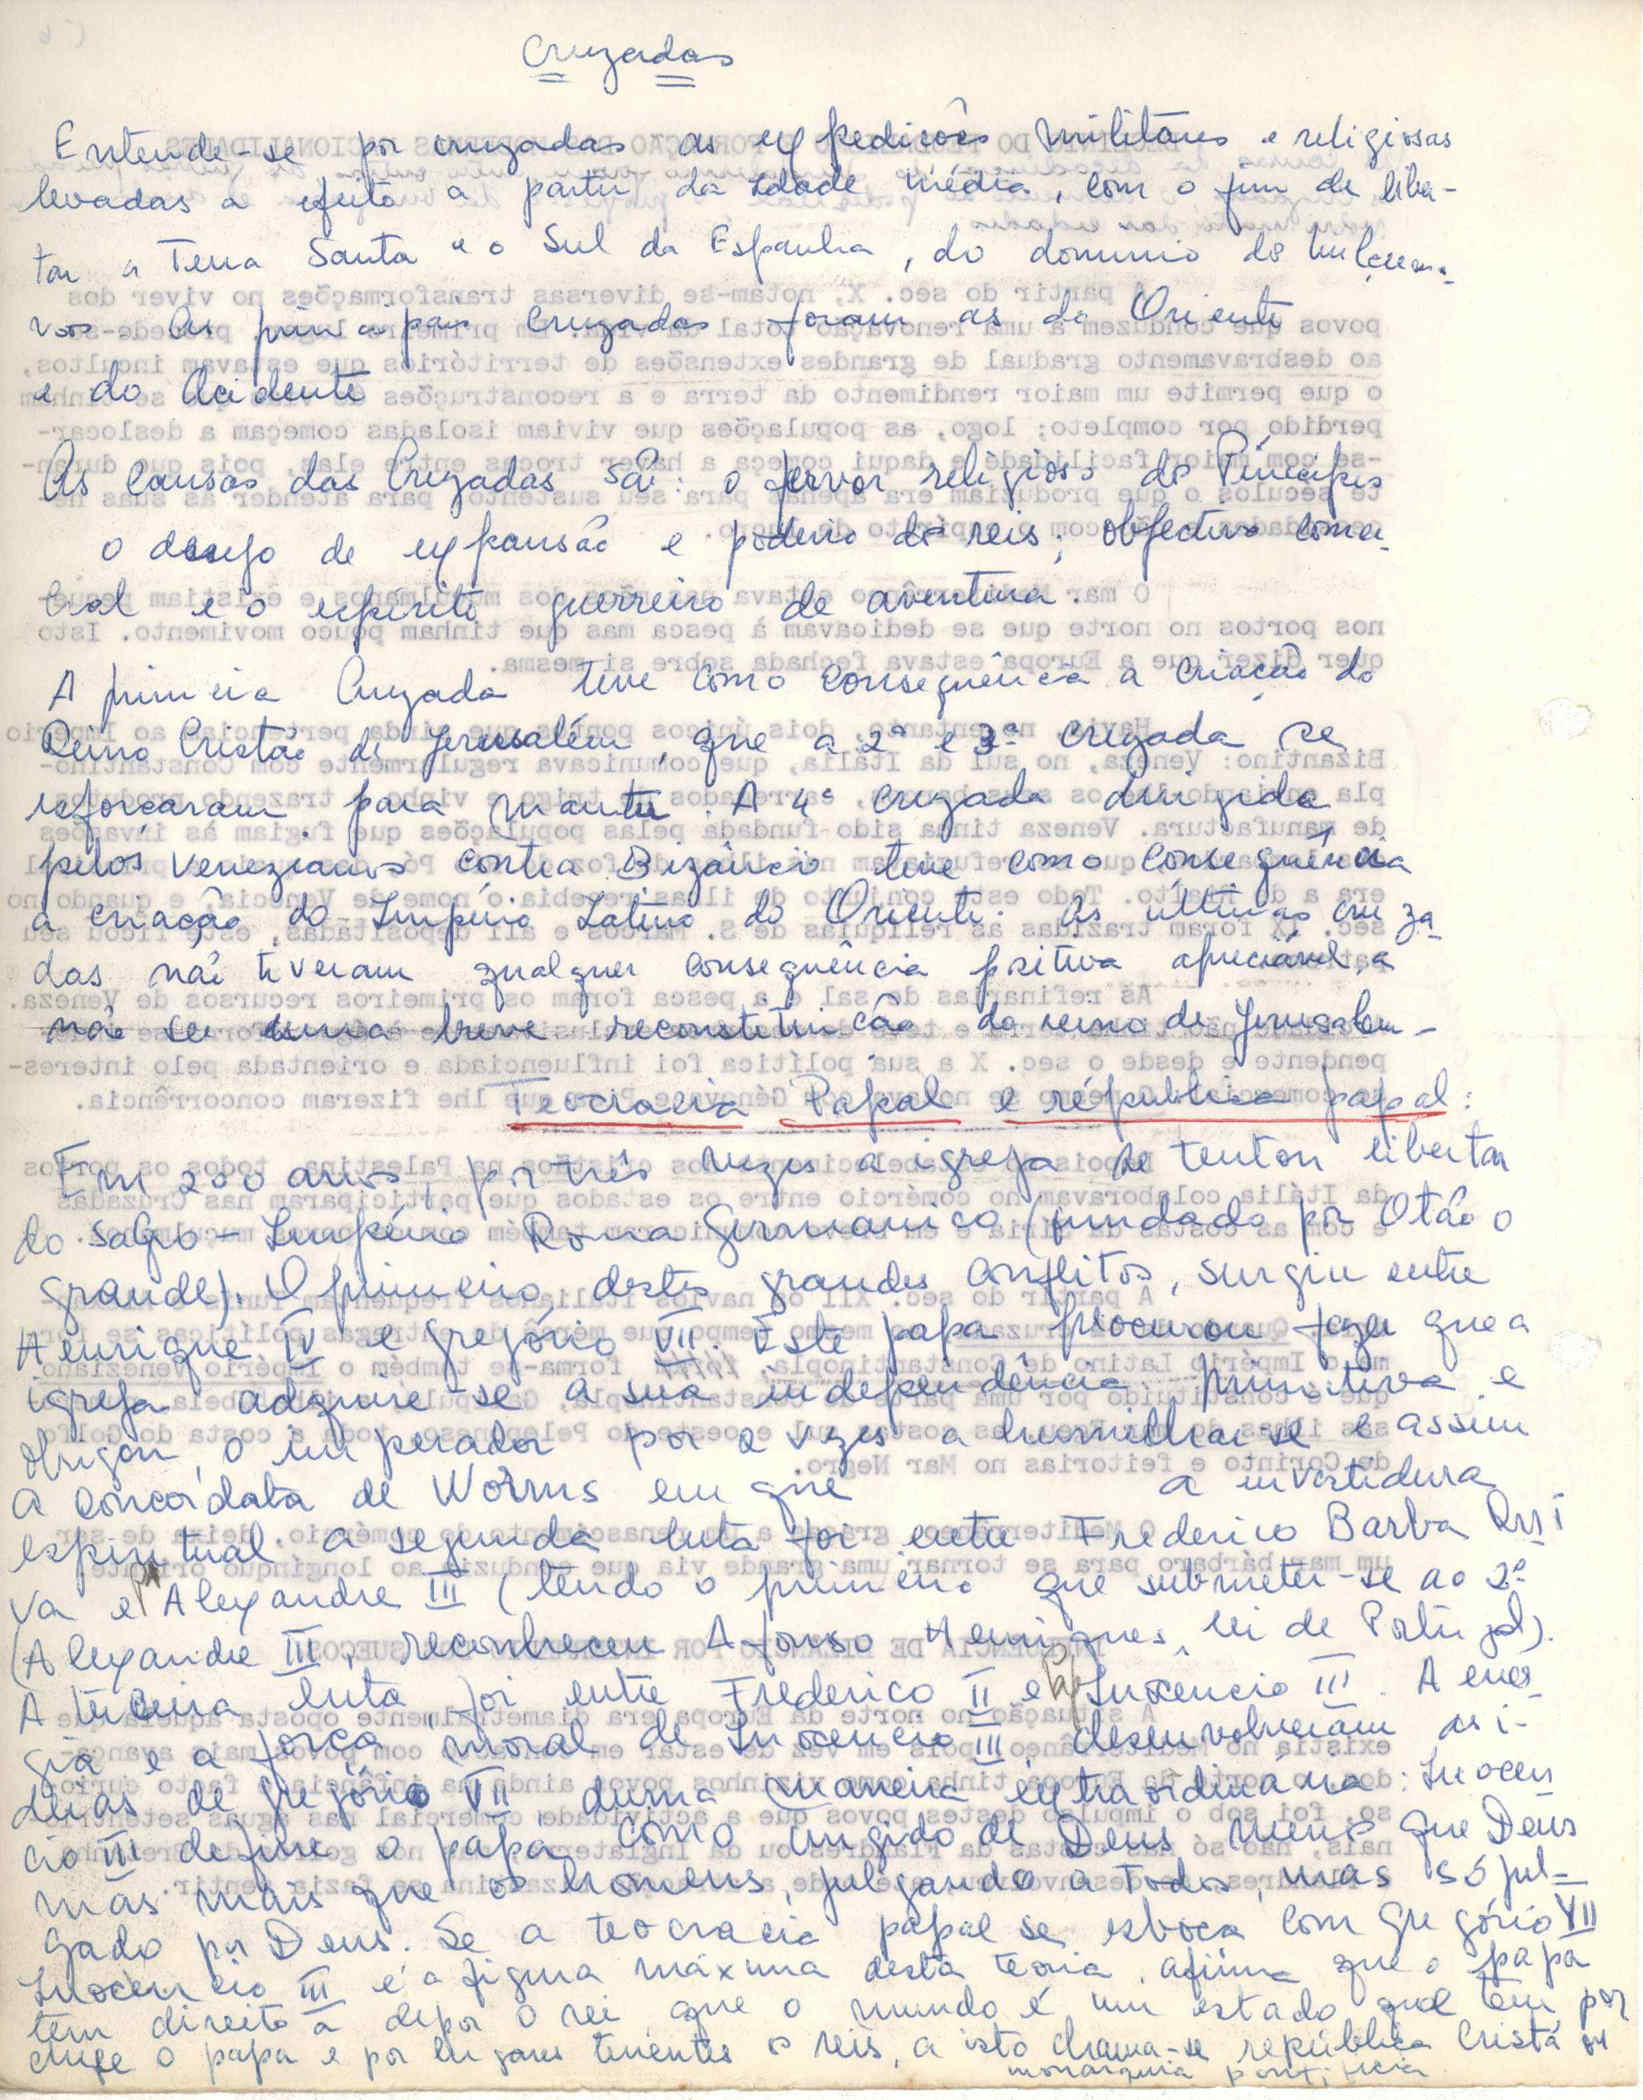 Cruzadas
Entende-se por cruzadas as expedicões militares e religiosas
levadas a efeito a partir da Idade média, com o fim de liber-
tar a Terra Santa e o Sul da Espanha, do dominio dos
As principais Cruzadas foram as do Oriente
e do Ocidente
As Causas das Cruzadas são: o fervor religioso dos Príncipes
o desejo de expansão e poderio dos reis; objectivo comer-
cial e o espírito guerreiro de aventura.
A primeira Cruzada teve como consequência a criacão do
Reino Cristão de Jerusalém, que a 2ª e 3ª cruzada se
esforçaram para manter. A 4ª cruzada dirigida
pelos venezianos contra Bizâncio teve como consequência
a criação do Império Latino do Oriente. As últimas cruza-
das não tiveram qualquer consequência positiva apreciável, a
não ser uma breve reconstituicão do reino de Jerusalem -
Teocracia Papal e républica papal:
Em 200 anos, por três vezes a igreja se tentou libertar
do Sacro - Império Roma Germanico (fundado por Otão o
grande). O primeiro destes grandes conflitos, surgiu entre
Henrique IV e gregório VII. Este papa procurou fazer que a
igreja adquire-se a sua independência primitiva e
obrigou o imperador por 2 vezes a humilhar se e assim
a concordata de Worms em que a investidura
espiritual a segunda luta foi entre Frederico Barba Rui
va e Alexandre III (tendo o primeiro que submeter-se ao 2º
(Alexandre III, reconheceu Afonso Henriques, rei de Portugal).
A terceira luta foi entre Frederico II e Inocêncio III. A ener-
gia e a força moral de Inocencio III, desenvolveram as i-
deias de gregório VII duma maneira extraordinária: Inocen
cio III define o papa como ungido de Deus menos que Deus
mas mais que os homens, julgando a todos, mas só jul-
gado por Deus. Se a teocracia papal se esboca com Gregório VII
Inocencio III é a figura máxima desta teoria, afirma que o papa
tem direito a depor o rei que o mundo é um estado que tem por
chefe o papa e por lugares tenentes os reis, a isto chama-se república Cristã ou
monarquia pontificia